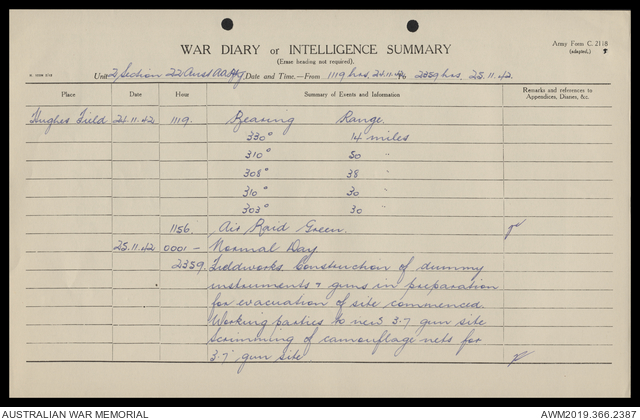 Army Form C. 2118
(adapted.)
WAR DIARY or INTELLIGENCE SUMMARY
(Erase heading not required).
Unit 2 Section 22 Aust AA Bty Date and Time.—From 1119 hrs. 24.11.42 to 2359 hrs. 25.11.42.
Place Date Hour Summary of Events and Information Remarks and references to Appendices, Diaries, &c.
Hughes Field 24.11.42 1119. Bearing Range.
330° 14 miles
310° 50 "
308° 38 "
310° 30 "
303° 30 "
1156. Air Raid Green.
25.11.42 0001 - Normal Day
2359. Fieldworks. Construction of dummy
instruments & guns in preparation
for evacuation of site commenced.
Working parties to new 3.7 gun site
Scrimming of camouflage nets for
3.7" gun site.
AUSTRALIAN WAR MEMORIAL AWM2019.366.2387